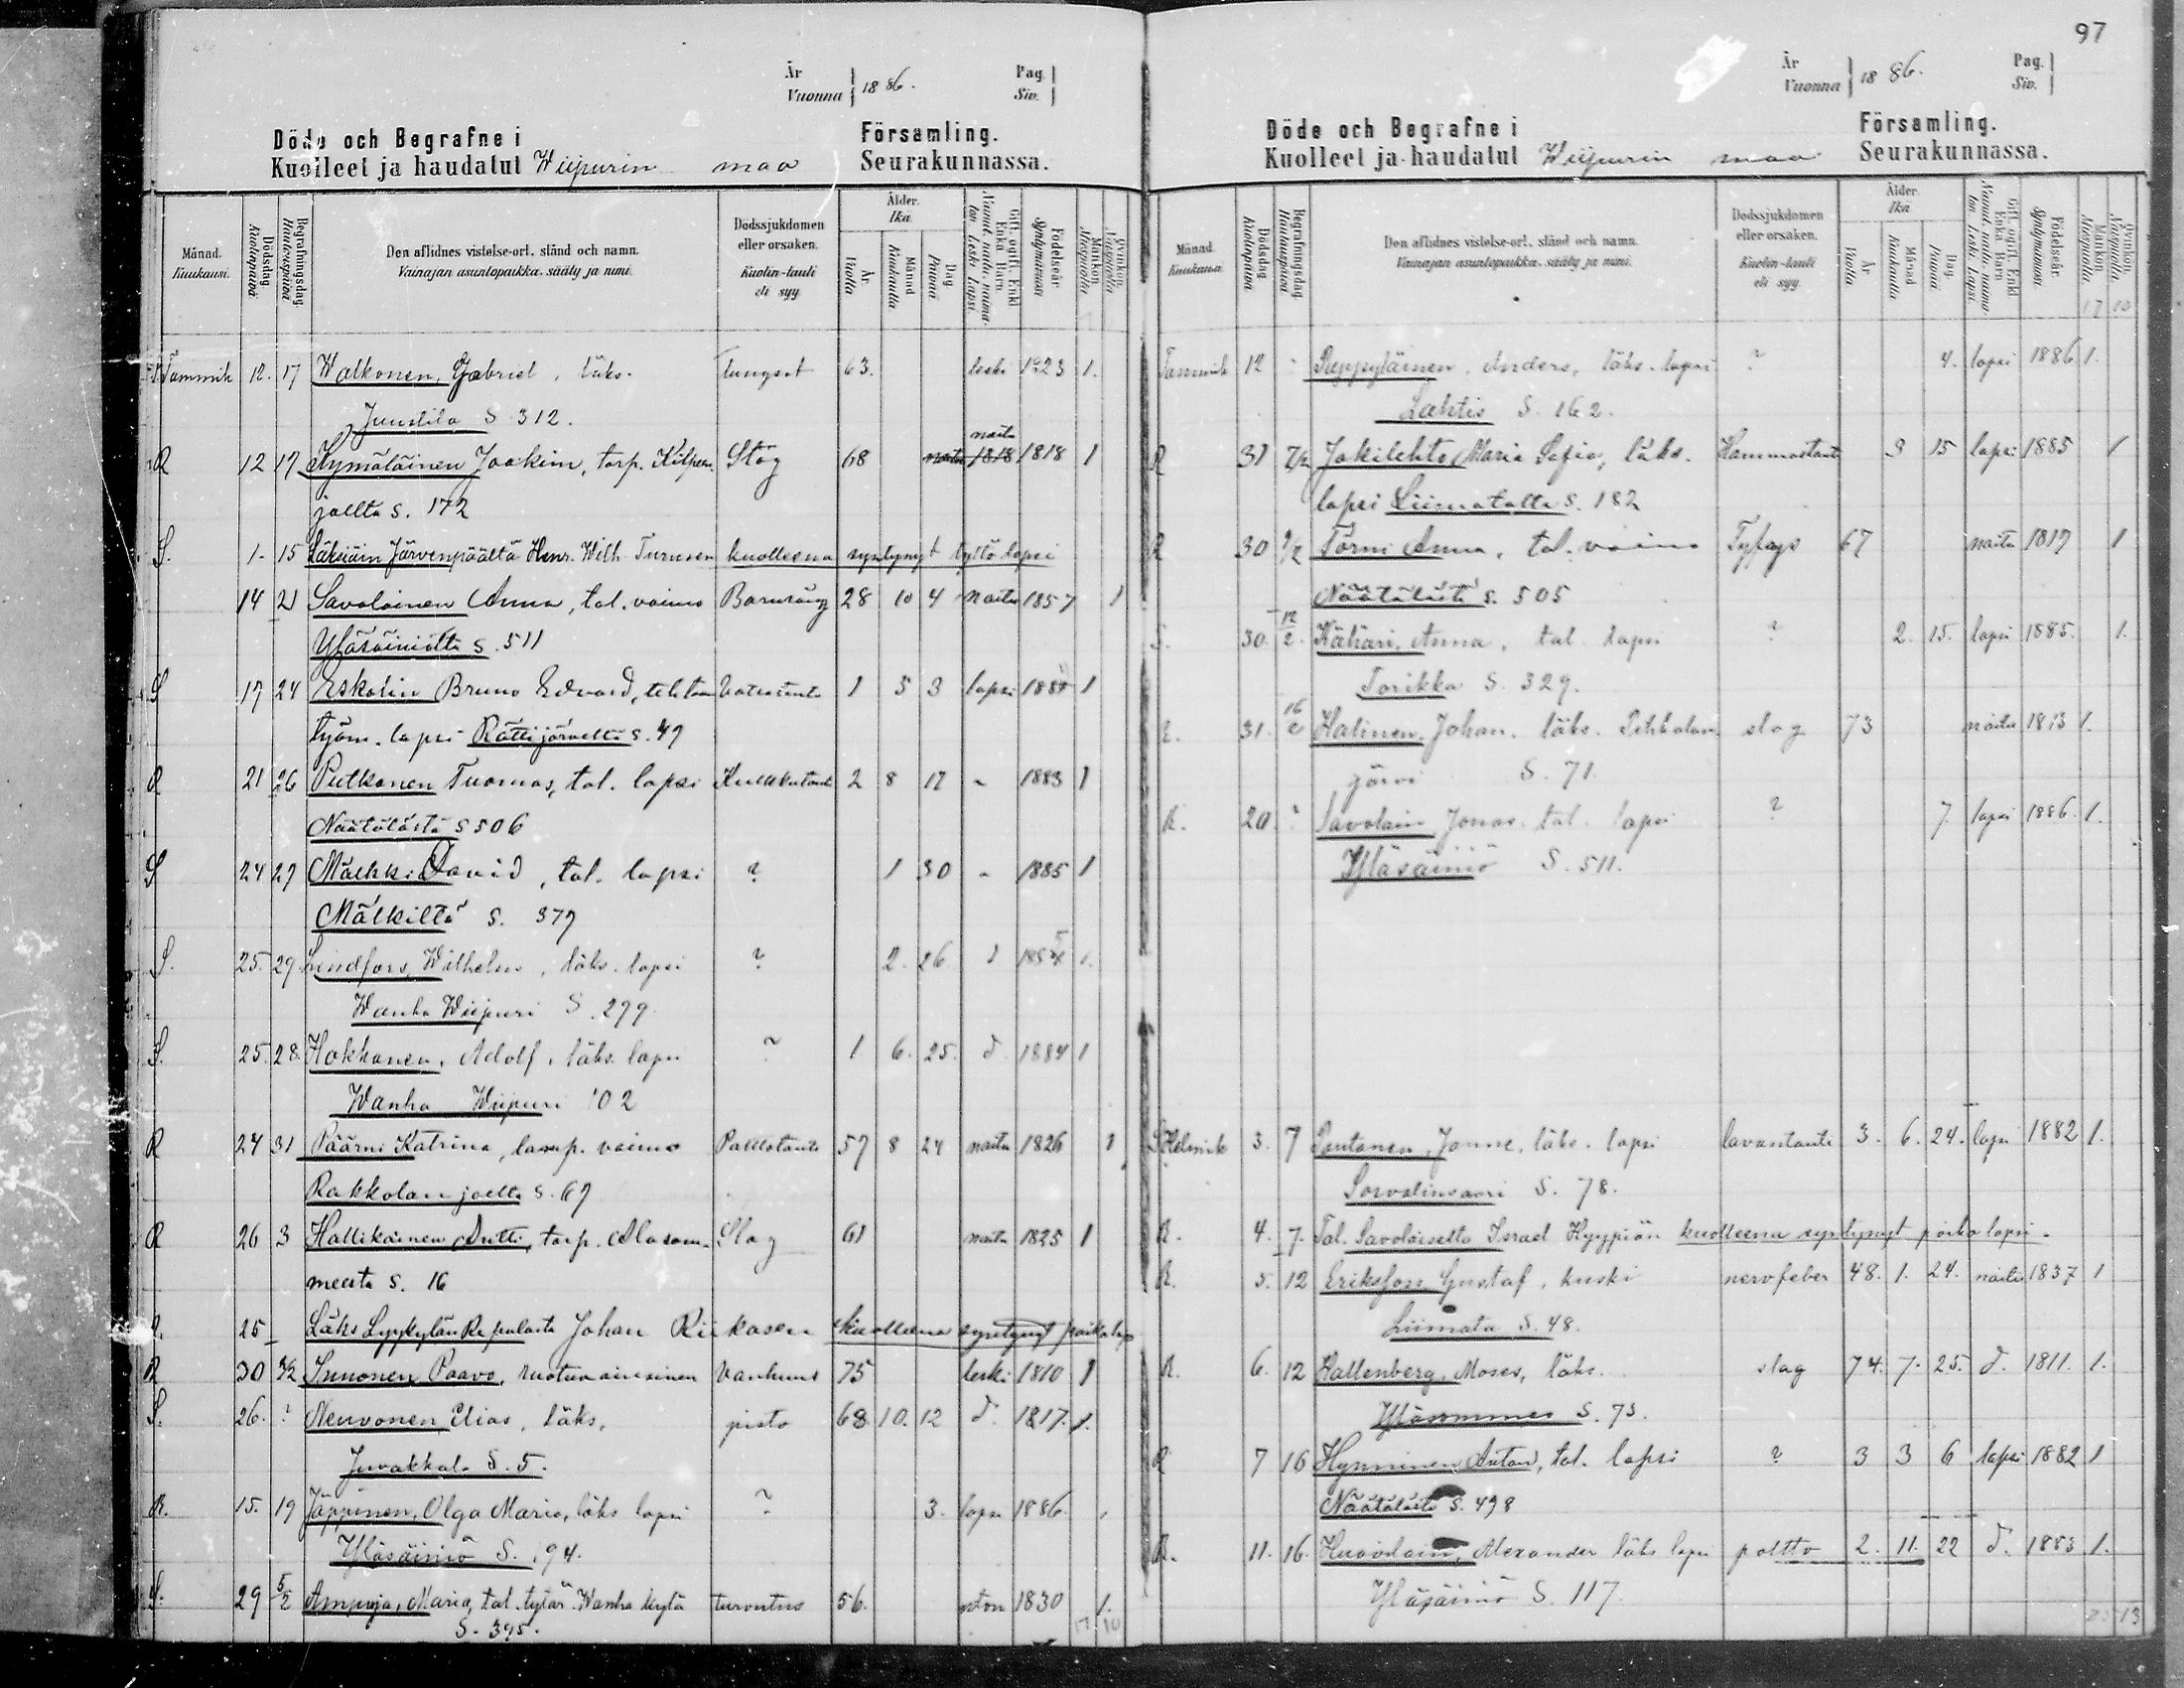 97
År
Vuonna 1886.
Pag.
Siv.
Döde och Begrafne i Församling.
Kuolleet ja haudatut Wiipurin maa Seurakunnassa.
Månad. Kuukausi.
Dödsdag Kuolinpäivä
Begrafningsdag. Hautauspäivä
Den aflidnes vistelse-ort, stånd och namn.
Vainajan asuntopaikka, sääty ja nimi.
Dödssjukdomen eller orsaken.
Kuolin-tauti eli syy.
Ålder. Ikä.
År. Vuotta
Månad. Kuukautta
Dag. Päivää
Gift, ogift, Enkl. Enka Barn.
Nainut, naitu, naimaton, Leski, Lapsi.
Födelseår. Syntymävuosi
Mankön. Miespuolia
Qvinkön. Vaimopuolia
Tammik 12. 17 Walkonen, Gabriel, läks. lungsot 63. leski 1823 1.
Juustila S. 312.
R 12 17 Kymäläinen Joakim, torp. Kilpeen- Slag 68 naitu 1818 1818 1
joelta s. 172
S. 1. 15 Läksiäin Järvenpäältä Henr. Wilh. Turusen kuolleena syntynyt tyttö lapsi
14 21 Savolainen Anna, tal. vaimo Barnsäng 28 10 4 naitu 1857 1
Yläsäiniöltä s. 511
S 17 24 Eskolin Bruno Edvard, tehtaan Vatsatauti 1 5 3 lapsi 1 1
työm. lapsi Rättijärveltä s. 49
R 21 26 Putkonen Tuomas, tal. lapsi Kurkkutauti 2 8 17 " 1883 1
Näätälästä S 506
S 24 27 Mälkki David, tal. lapsi ? 1 30 " 1885 1
Mälkiltä s. 379
S. 25. 29 Lindfors, Wilhelm, läks. lapsi ? 2. 26 d 1.
Wanha Wiipuri S. 299.
S. 25. 28. Hokkanen, Adolf, läks. lapsi ? 1 6. 25. d. 1884 1
Wanha Wiipuri 102
R 24 31 Päärni Katrina, lamp. vaimo Palllotauti 57 8 24 naitu 1826 1
Rakkolanjoelta s. 67
R 26 3 Hallikainen Antti, torp. Alasom- Slag 61 naitu 1825 1
meesta s. 16
R. 25 Läks Lyykylän Repulasta Johan Riikosen kuolleena syntynyt poikalaps
R 30 3/2 Immonen Paavo, ruotuvaivainen Vanhuus 75 leski 1810 1
S. 26. ? Neuvonen, Elias, läks. pisto 68. 10. 12 d. 1817. 1.
Juvakkala S. 5.
R. 15. 19 Jäppinen, Olga Maria, läks lapsi ? 3. lapsi 1886.
Yläsäiniö S. 194.
S. 29 5/2 Ampuja, Maria, tal. tytär. Wanha kylä turvotus 56. nton 1830 1.
S. 395.
17 10
År
Vuonna 1886.
Pag.
Siv.
Döde och Begrafne i Församling.
Kuolleet ja haudatut Wiipurin maa Seurakunnassa.
Månad. Kuukausi.
Dödsdag Kuolinpäivä
Begrafningsdag. Hautauspäivä
Den aflidnes vistelse-ort, stånd och namn.
Vainajan asuntopaikka, sääty ja nimi.
Dödssjukdomen eller orsaken.
Kuolin-tauti eli syy.
Ålder. Ikä.
År. Vuotta
Månad. Kuukautta
Dag. Päivää
Gift, ogift, Enkl. Enka Barn.
Nainut, naitu, naimaton, Leski, Lapsi.
Födelseår. Syntymävuosi
Mankön. Miespuolia
Qvinkön. Vaimopuolia
17 10
Tammik 12 " Reppyläinen, Anders, läks. lapsi ? 4. lapsi 1886 1.
Lahtis S. 162.
R 31 7/2 Jokilehto, Maria Sofia, läks. Hammastauti 3 15 lapsi 1885 1
lapsi Liimatalta S. 182
R 30 9/2 Törni Anna, tal. vaimo Tyfus 67 naitu 1819 1
Näätälästä s. 505
S. 30. 12/2. Kähäri, Anna, tal. lapsi ? 2. 15. lapsi 1885. 1.
Torikka S. 329.
R. 31. 16/2 Halinen, Johan. läks. Pihkalan- slag 73 naitu 1813 1.
järvi S. 71.
R. 20. ? Savolain Jonas. tal. lapsi ? 7. lapsi 1886. 1.
Yläsäiniö S. 511.
S Helmik 3. 7 Pantanen, Janne, läks. lapsi lavantauti 3. 6. 24. lapsi 1882 1.
Sorvalinsaari S. 78.
R. 4. 7. Tal. Savolaiselta Israel Hyypiän kuolleena syntynyt poika lapsi.
R. 5. 12 Eriksson Gustaf, kuski nervfeber 48. 1. 24. naitu 1837 1
Liimata S. 48.
R. 6. 12 Hallenberg, Moses, läks. slag 74. 7. 25. d. 1811. 1.
Yläsommee S. 73.
R 7 16 Hynninen Anton, tal. lapsi ? 3 3 6 lapsi 1882 1
Näätälästä S. 498
R. 11. 16. Huovilain, Alexander läks lapsi poltto 2. 11. 22 d. 1883 1.
Yläsäiniö S. 117.
25 13